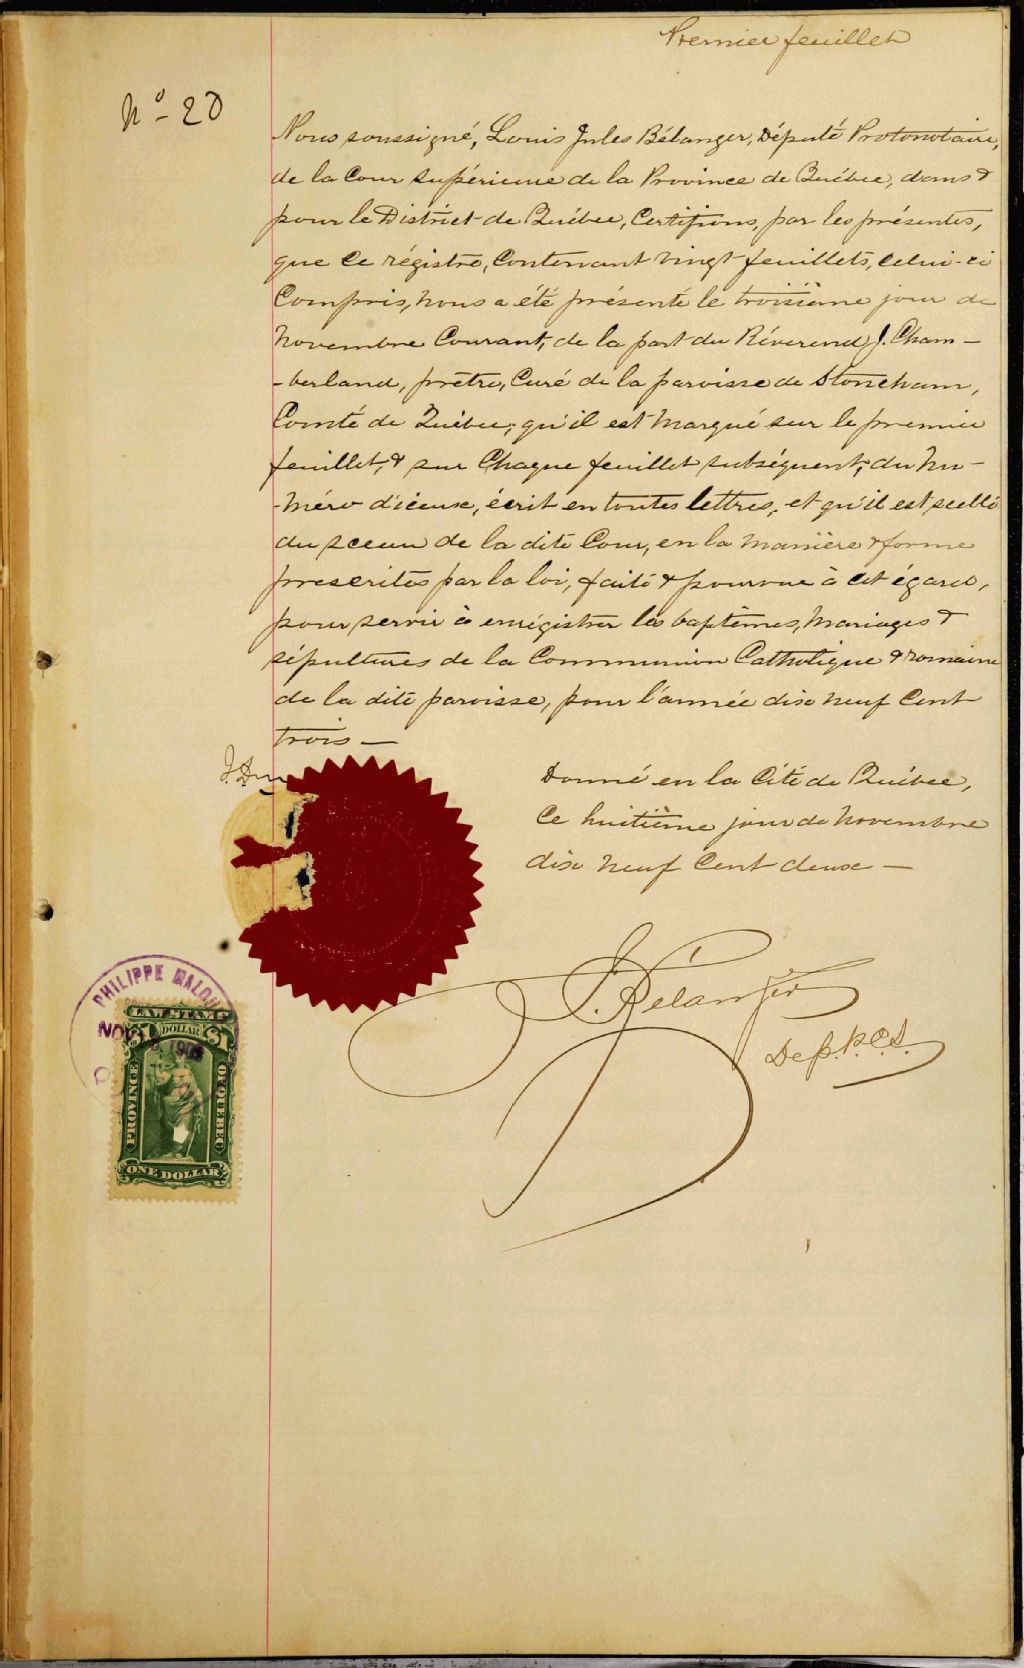 Premier feuillet
No - 20
Nous soussigné, Louis Jules Bélanger, Député Protonotaire,
de la Cour Supérieure de la Province de Québec, dans &
pour le District de Québec, Certifions, par les présentes,
que ce régistre, contenant vingt feuillets, celui-ci
compris, nous a été présenté le troisième jour de
Novembre Courant, de la part du Révérend J. Cham-
-berland, prêtre, Curé de la paroisse de Stoneham,
Comté de Québec; qu'il est marqué sur le premier
feuillet, & sur chaque feuillet subséquent, du nu-
-méro d'iceux, écrit en toutes lettres, et qu'il est scellé
du sceau de la dite Cour, en la manière & forme
prescrites par la loi, faite & pourvue à cet égard,
pour servir à enrégistrer les baptêmes, mariages &
sépultures de la Communion Catholique & romaine
de la dite paroisse, pour l'année dix neuf Cent
trois —
Donné en la Cité de Québec,
ce huitième jour de Novembre
dix neuf Cent deux —
J. Bélanger
Dep. P.C.S.
PHILIPPE MALOU
NOV
LAW STAMP
$1 DOLLAR $1
PROVINCE
OF QUEBEC
ONE DOLLAR